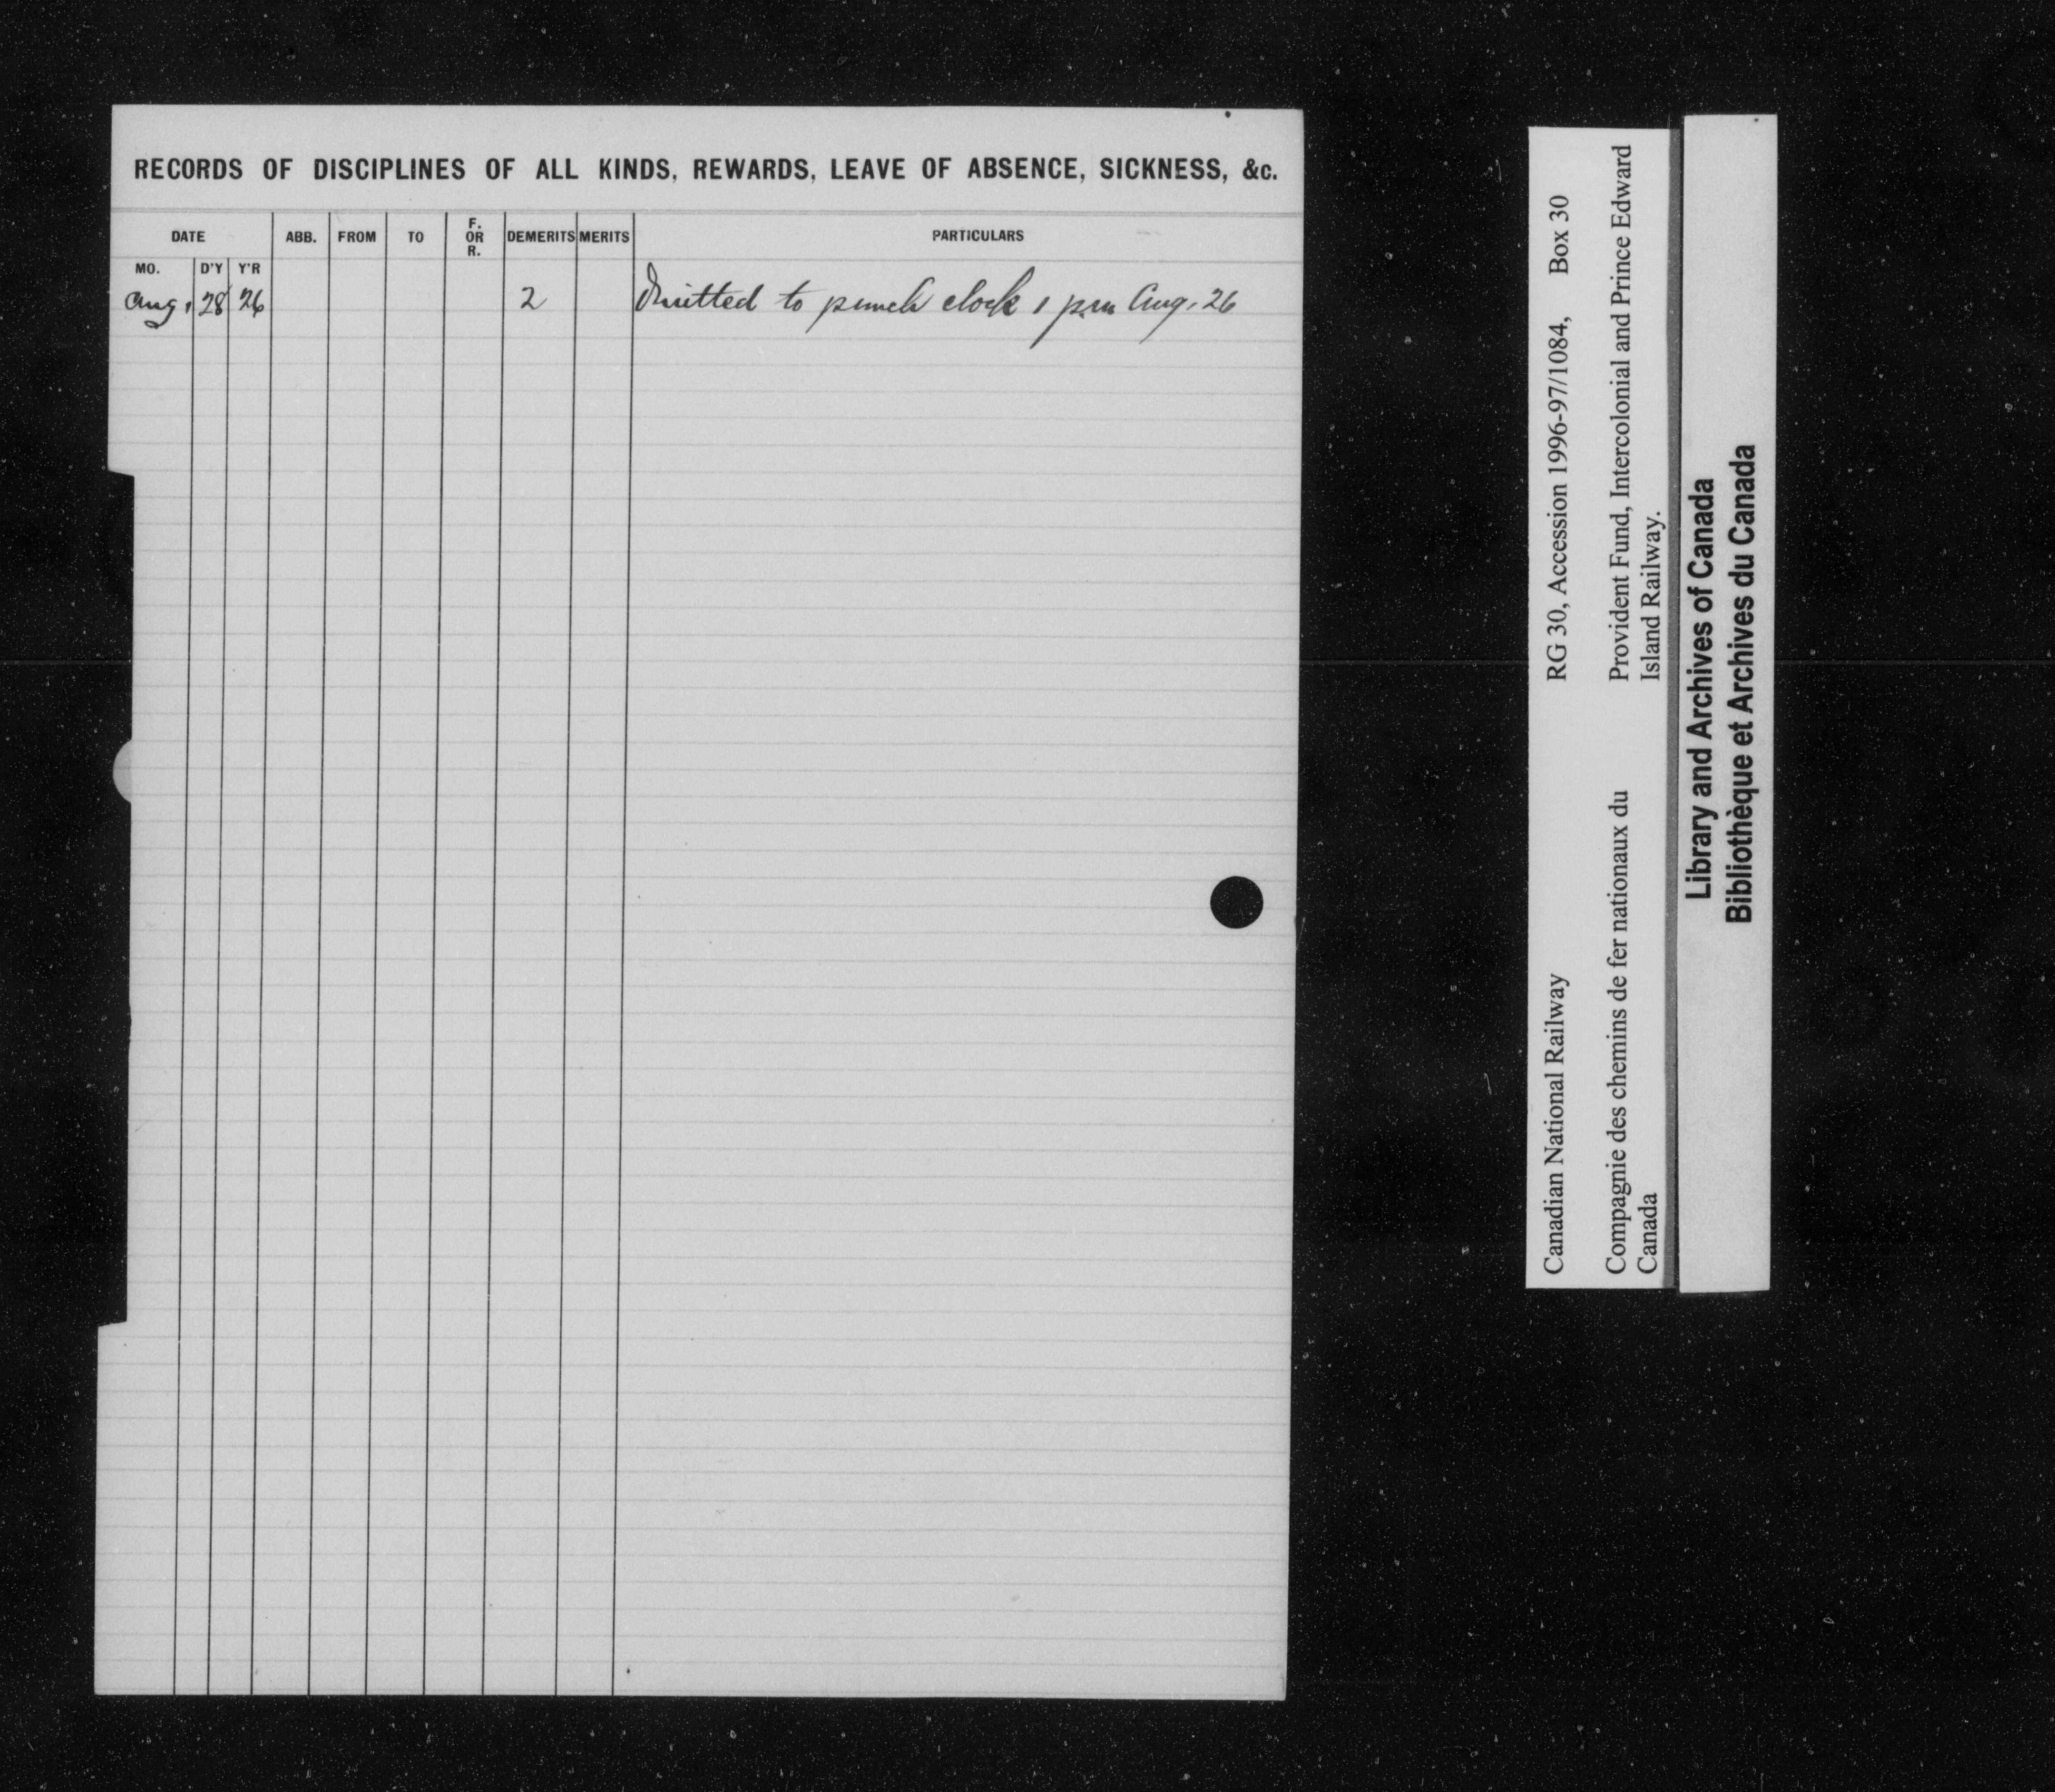 RECORDS OF DISCIPLINES OF ALL KINDS, REWARDS, LEAVE OF ABSENCE, SICKNESS, &c.
DATE ABB. FROM TO F. OR R. DEMERITS MERITS PARTICULARS
MO. D'Y Y'R
Aug. 28 26 2 Omitted to punch clock 1 pm Aug. 26
Canadian National Railway RG 30, Accession 1996-97/1084, Box 30
Compagnie des chemins de fer nationaux du Provident Fund, Intercolonial and Prince Edward
Canada Island Railway.
Library and Archives of Canada
Bibliothèque et Archives du Canada